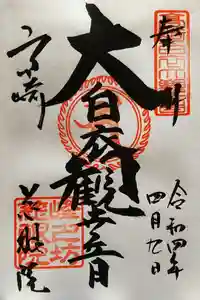 奉拝
高崎
大白衣観世音
慈眼院
令和四年
四月九日